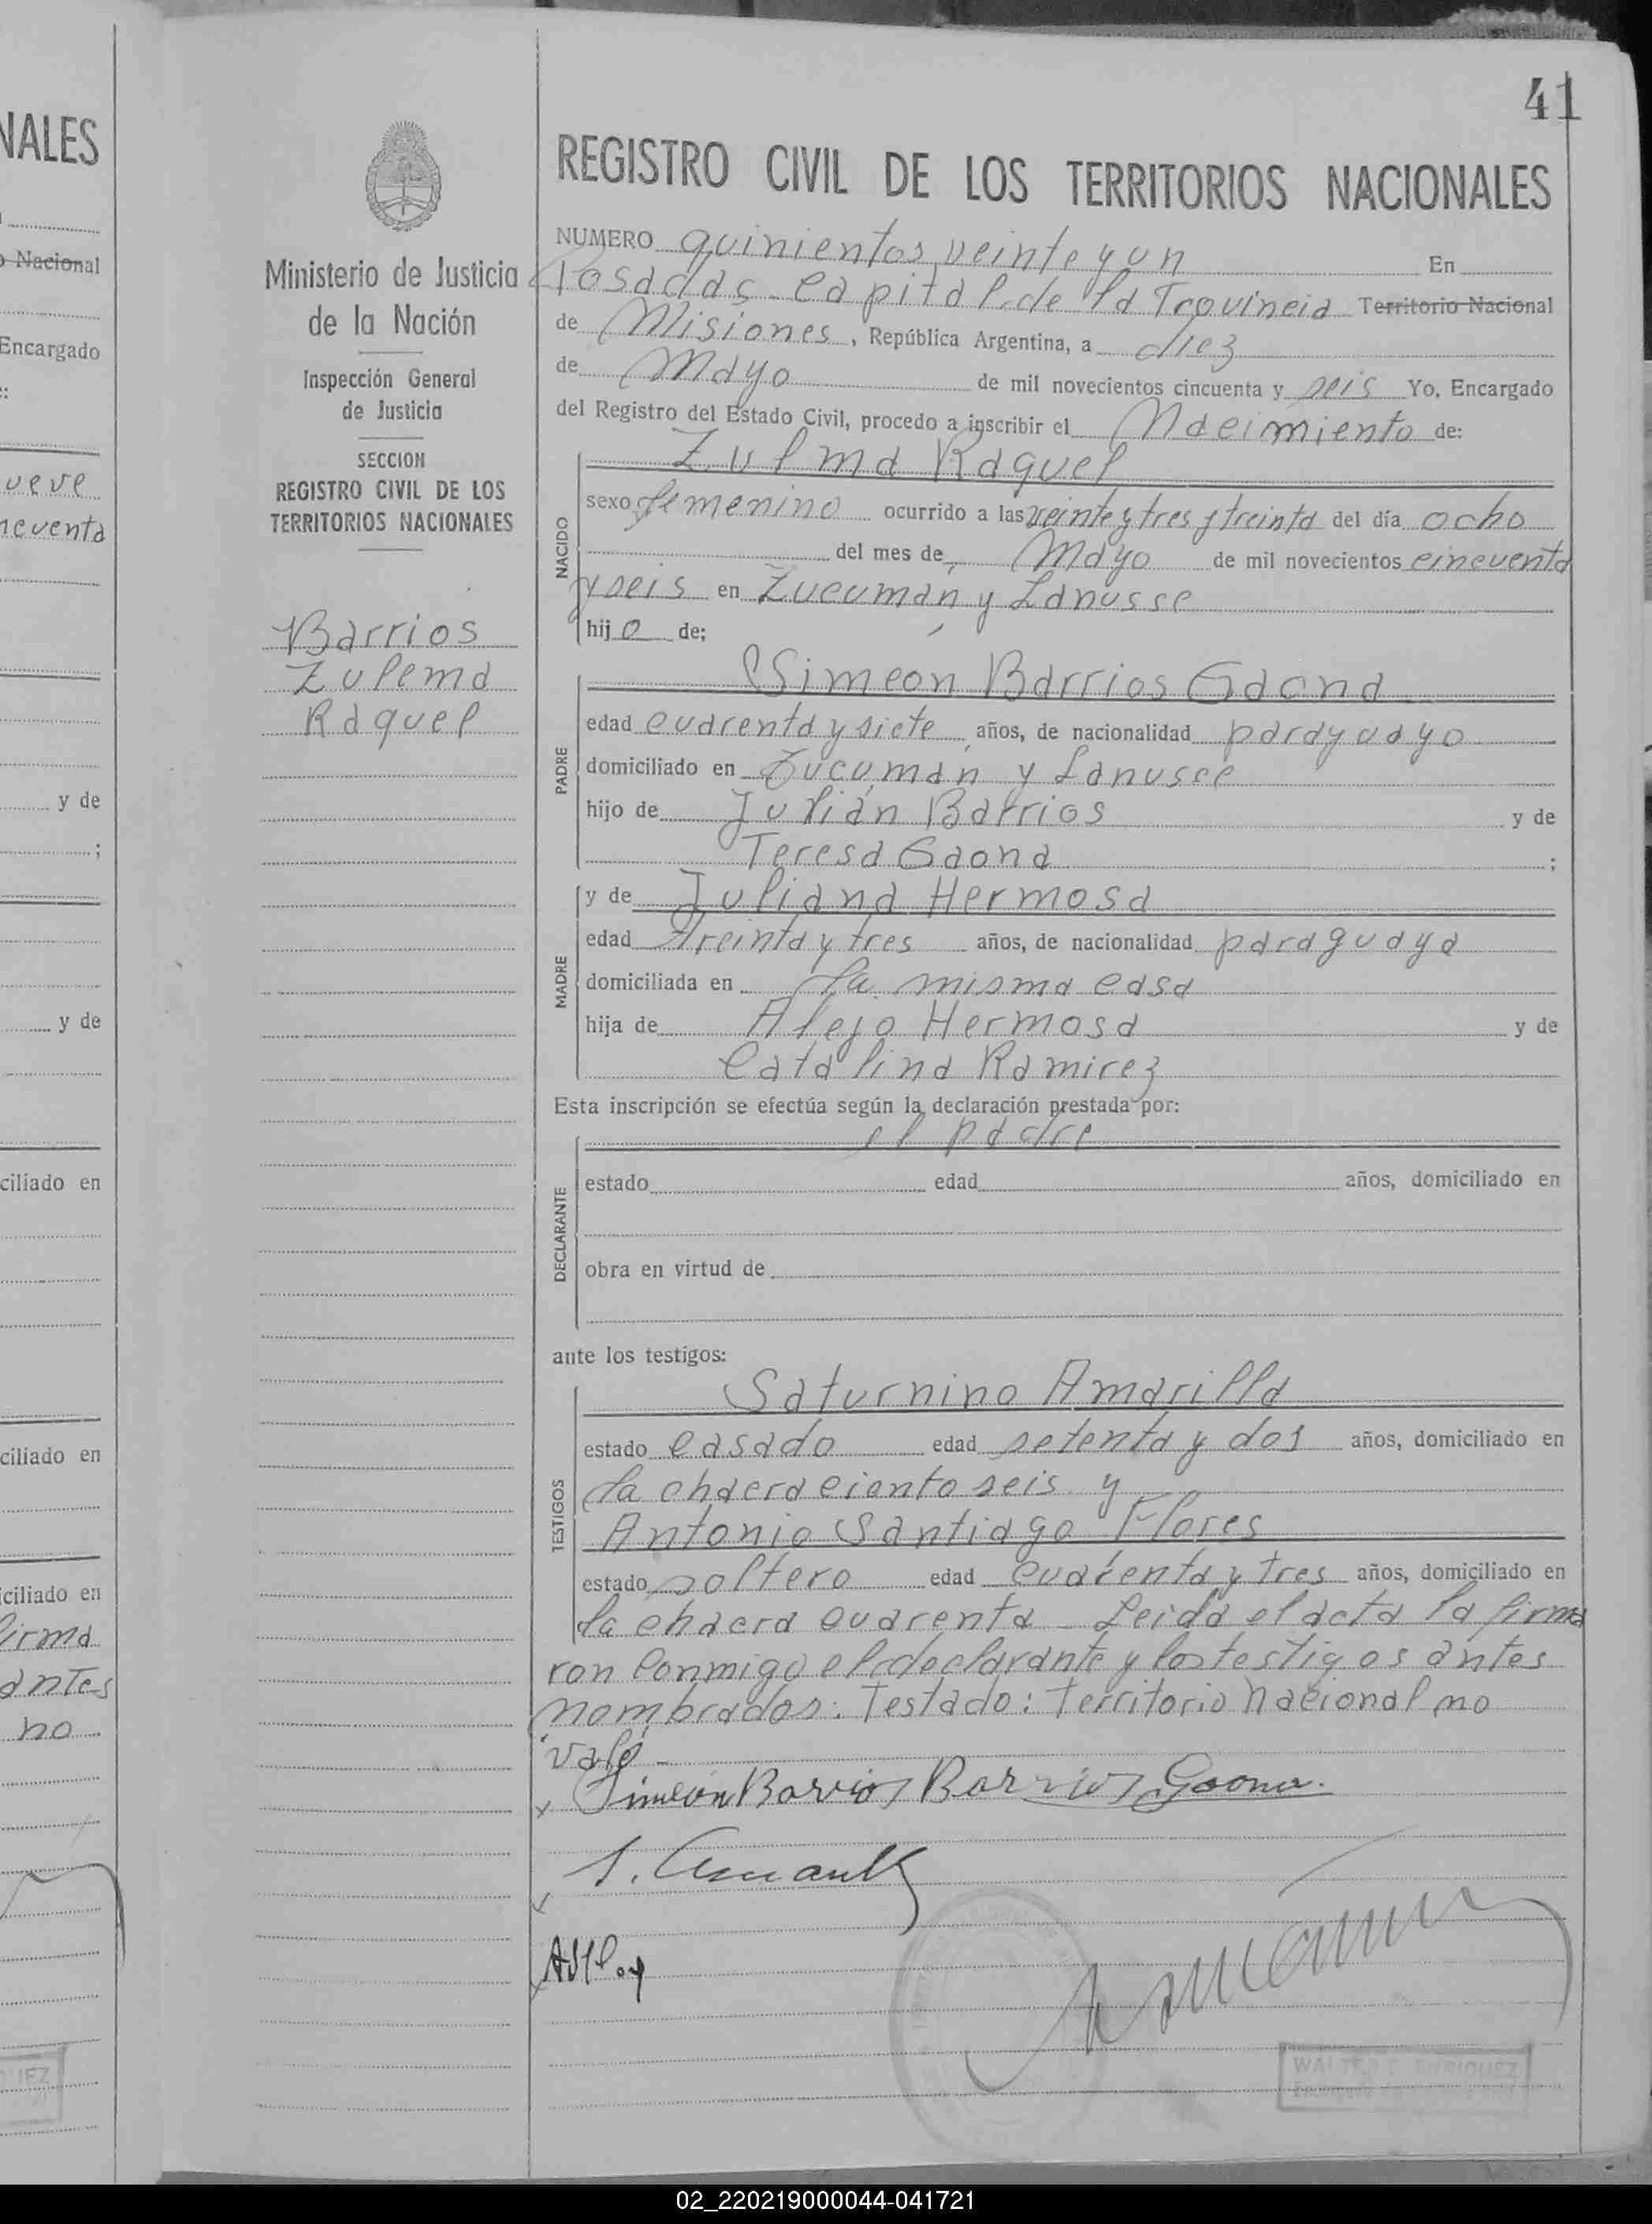 41
NALES
Nacional
Encargado
ueve
ncuenta
y de
;
y de
ciliado en
ciliado en
ciliado en
firma
antes
no
Ministerio de Justicia
de la Nación
Inspección General
de Justicia
SECCION
REGISTRO CIVIL DE LOS
TERRITORIOS NACIONALES
Barrios
Zulema
Raquel
REGISTRO CIVIL DE LOS TERRITORIOS NACIONALES
NUMERO quinientos veinte y un En
Posadas - Capital de la Provincia Territorio Nacional
de Misiones, República Argentina, a diez
de Mayo de mil novecientos cincuenta y seis Yo, Encargado
del Registro del Estado Civil, procedo a inscribir el Nacimiento de:
NACIDO
Zulma Raquel
sexo femenino ocurrido a las veinte y tres y treinta del día ocho
del mes de Mayo de mil novecientos cincuenta
y seis en Tucumán y Lanusse
hija de;
PADRE
Simeón Barrios Gaona
edad cuarenta y siete años, de nacionalidad paraguayo
domiciliado en Tucumán y Lanusse
hijo de Julián Barrios y de
Teresa Gaona ;
MADRE
y de Juliana Hermosa
edad treinta y tres años, de nacionalidad paraguaya
domiciliada en la misma casa
hija de Alejo Hermosa y de
Catalina Ramirez
Esta inscripción se efectúa según la declaración prestada por:
DECLARANTE
el padre
estado edad años, domiciliado en
obra en virtud de
ante los testigos:
TESTIGOS
Saturnino Amarilla
estado casado edad setenta y dos años, domiciliado en
la chacra ciento seis y
Antonio Santiago Flores
estado soltero edad cuarenta y tres años, domiciliado en
la chacra cuarenta - Leida el acta la firma
ron conmigo el declarante y los testigos antes
nombrados: Testado: Territorio Nacional no
vale -
x Simeón Barrios Barrios Gaona.
WALTER ENRIQUEZ
02_220219000044-041721